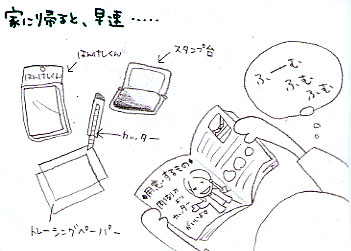 家に帰ると、早速……
はんけしくん
はんけしくん
スタンプ台
カッター
トレーシングペーパー
ふーむ
ふむ
ふむ
用意するもの
カッター